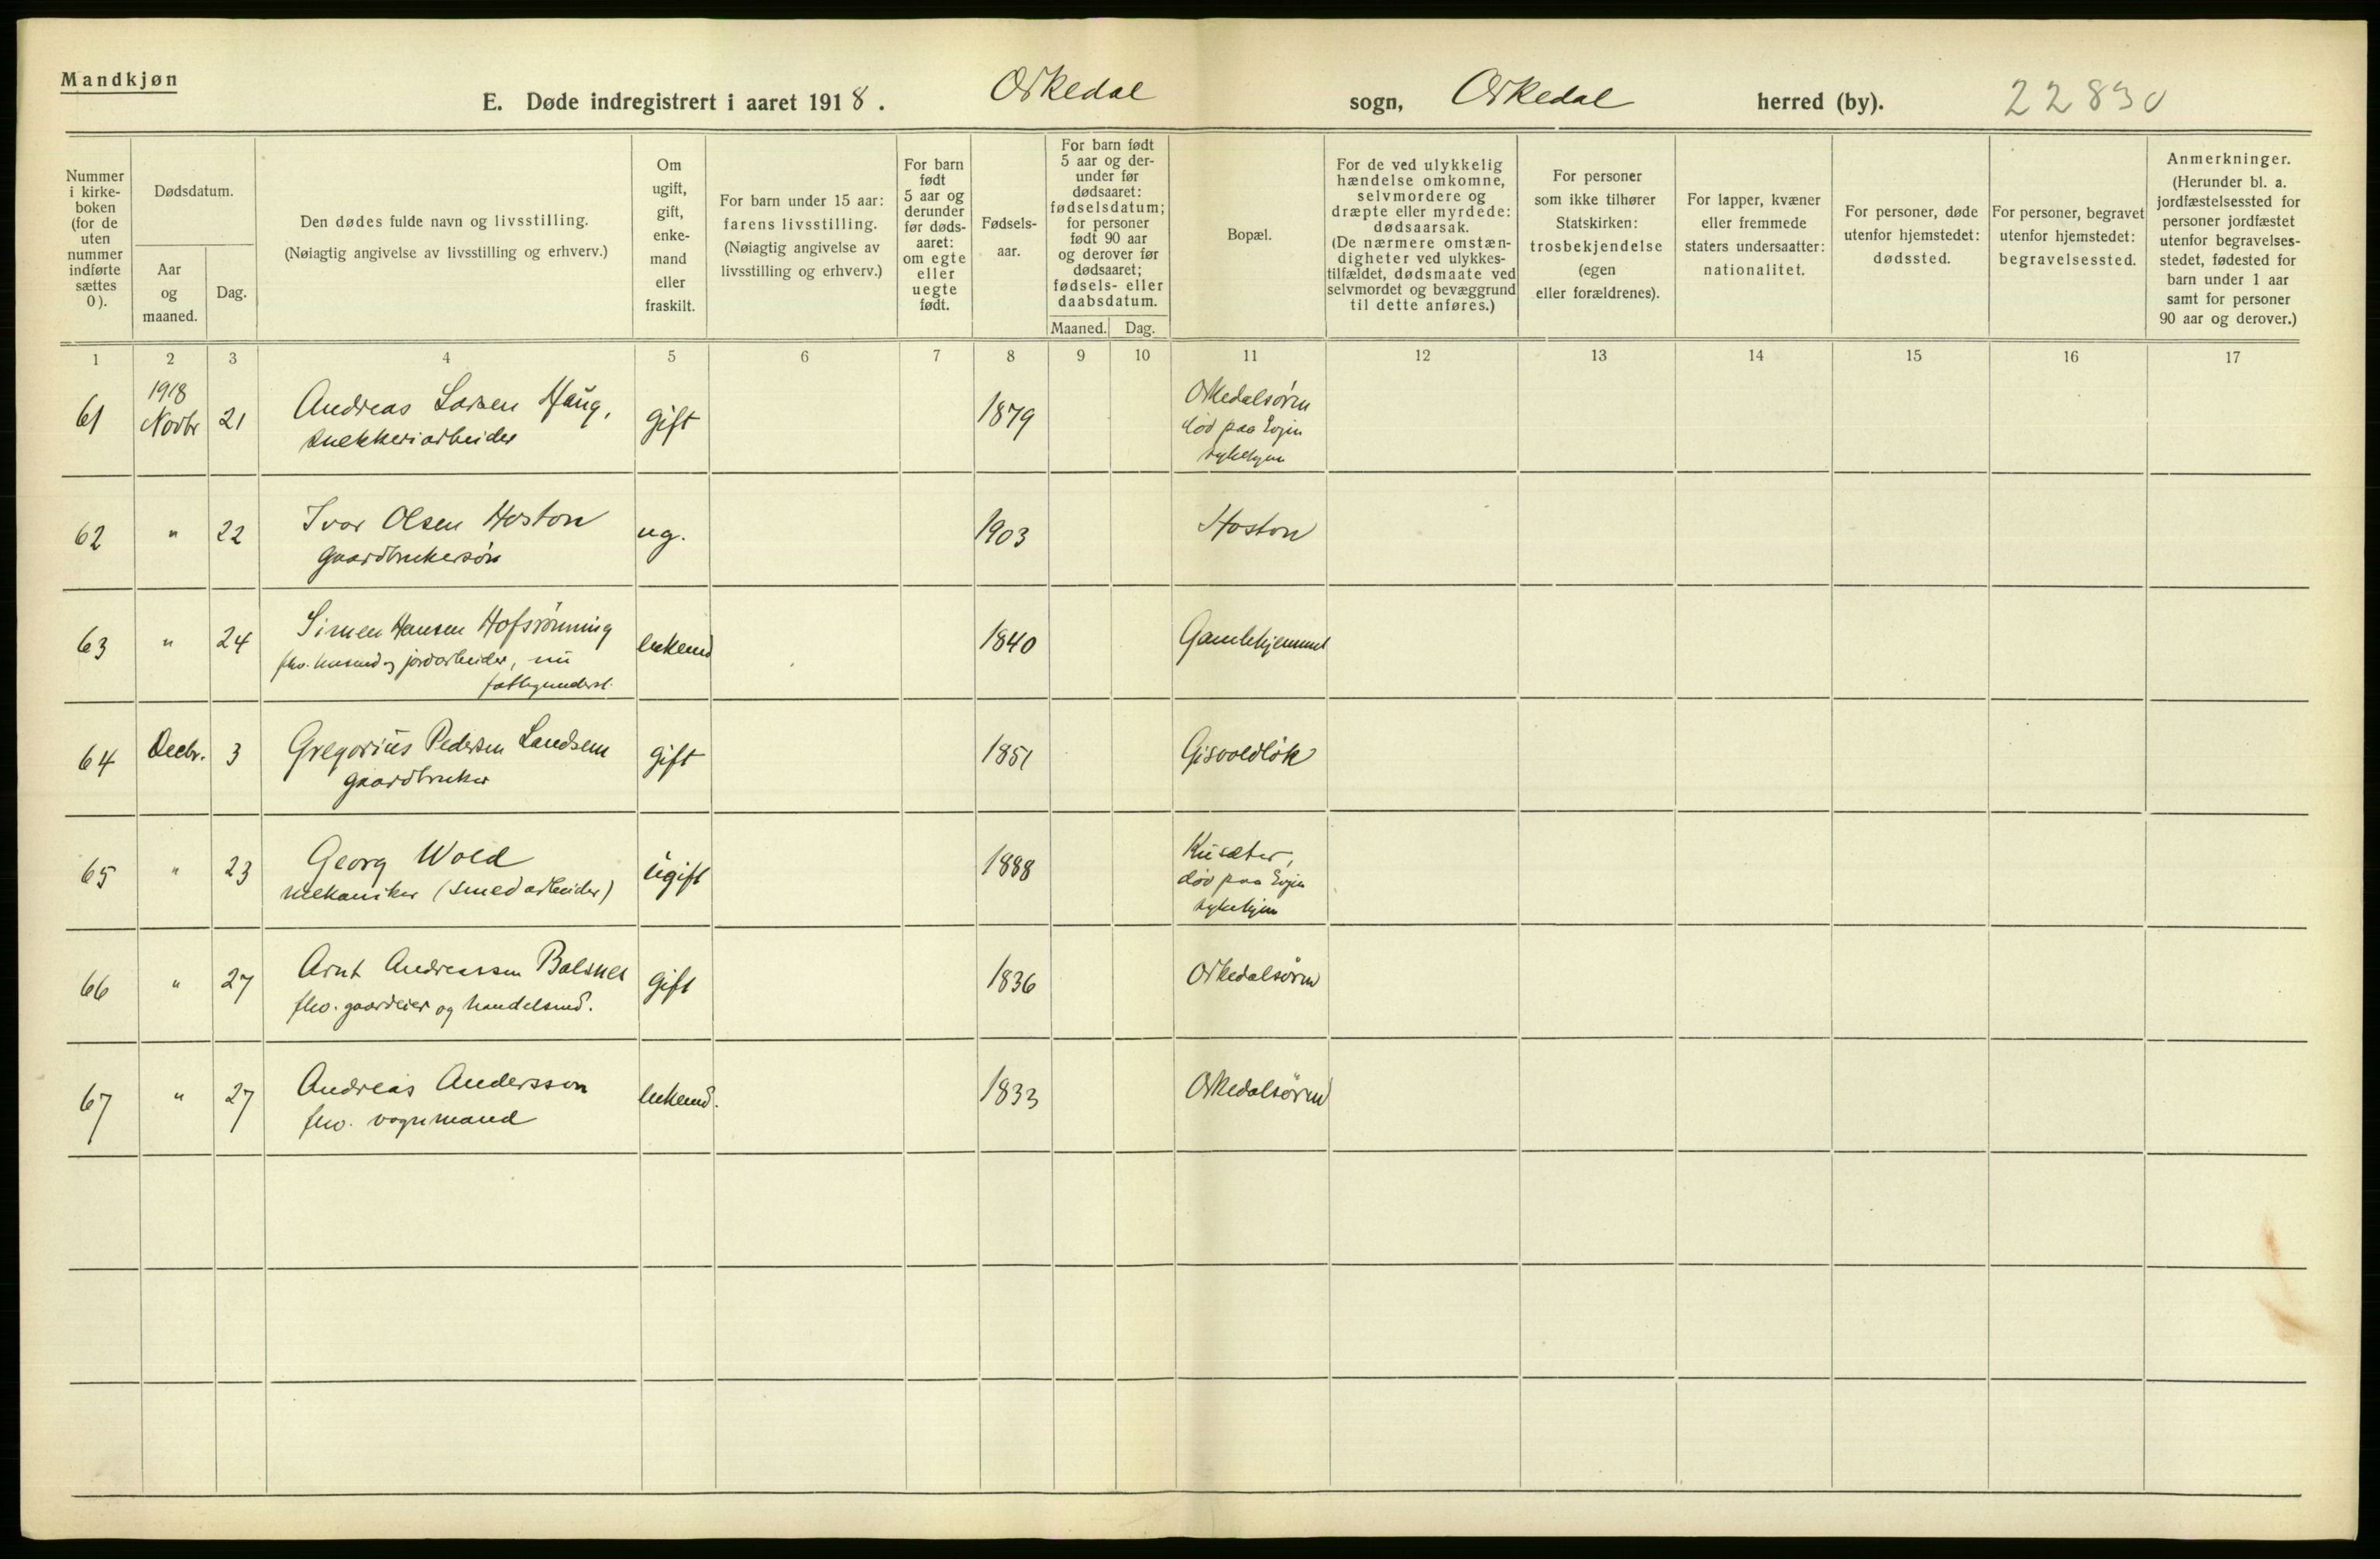 Mandkjøn
E. Døde indregistrert i aaret 1918. Orkedal sogn, Orkedal herred (by). 22830
Nummer i kirke-boken (for de uten nummer indførte sættes 0).
Dødsdatum.
Aar og maaned.
Dag.
Den dødes fulde navn og livsstilling.
(Nøiagtig angivelse av livsstilling og erhverv.)
Om ugift, gift, enke-mand eller fraskilt.
For barn under 15 aar: farens livsstilling. (Nøiagtig angivelse av livsstilling og erhverv.)
For barn født 5 aar og derunder før døds-aaret: om egte eller uegte født.
Fødsels-aar.
For barn født 5 aar og der-under før dødsaaret: fødselsdatum; for personer født 90 aar og derover før dødsaaret; fødsels- eller daabsdatum.
Maaned. Dag.
Bopæl.
For de ved ulykkelig hændelse omkomne, selvmordere og dræpte eller myrdede: dødsaarsak. (De nærmere omstæn-digheter ved ulykkes-tilfældet, dødsmaate ved selvmordet og bevæggrund til dette anføres.)
For personer som ikke tilhører Statskirken: trosbekjendelse (egen eller forældrenes).
For lapper, kvæner eller fremmede staters undersaatter: nationalitet.
For personer, døde utenfor hjemstedet: dødssted.
For personer, begravet utenfor hjemstedet: begravelsessted.
Anmerkninger. (Herunder bl. a. jordfæstelsessted for personer jordfæstet utenfor begravelses-stedet, fødested for barn under 1 aar samt for personer 90 aar og derover.)
1 2 3 4 5 6 7 8 9 10 11 12 13 14 15 16 17
61 1918 Novbr 21 Andreas Larsen Haug, gift 1879 Orkedalsøren
snekkeriarbeider død paa Evjen
sykehjem
62 " 22 Ivar Olsen Hoston ug. 1903 Hoston
gaardbrukersøn
63 " 24 Simen Hansen Hofsrønning enkemd 1840 Gamlehjemmet
fhv. husmd og jordarbeider, nu
fattigunderst.
64 Decbr. 3 Gregorius Pedersen Landsem gift 1851 Gisvoldløk
gaardbruker
65 " 23 Georg Wold ugift 1888 Kusæter,
mekaniker (smedarbeider) død paa Evjen
sykehjem
66 " 27 Arnt Andreassen Balsnes gift 1836 Orkedalsøren
fhv. gaardeier og handelsmd.
67 " 27 Andreas Andersson enkemd. 1833 Orkedalsøren
fhv. vognmand